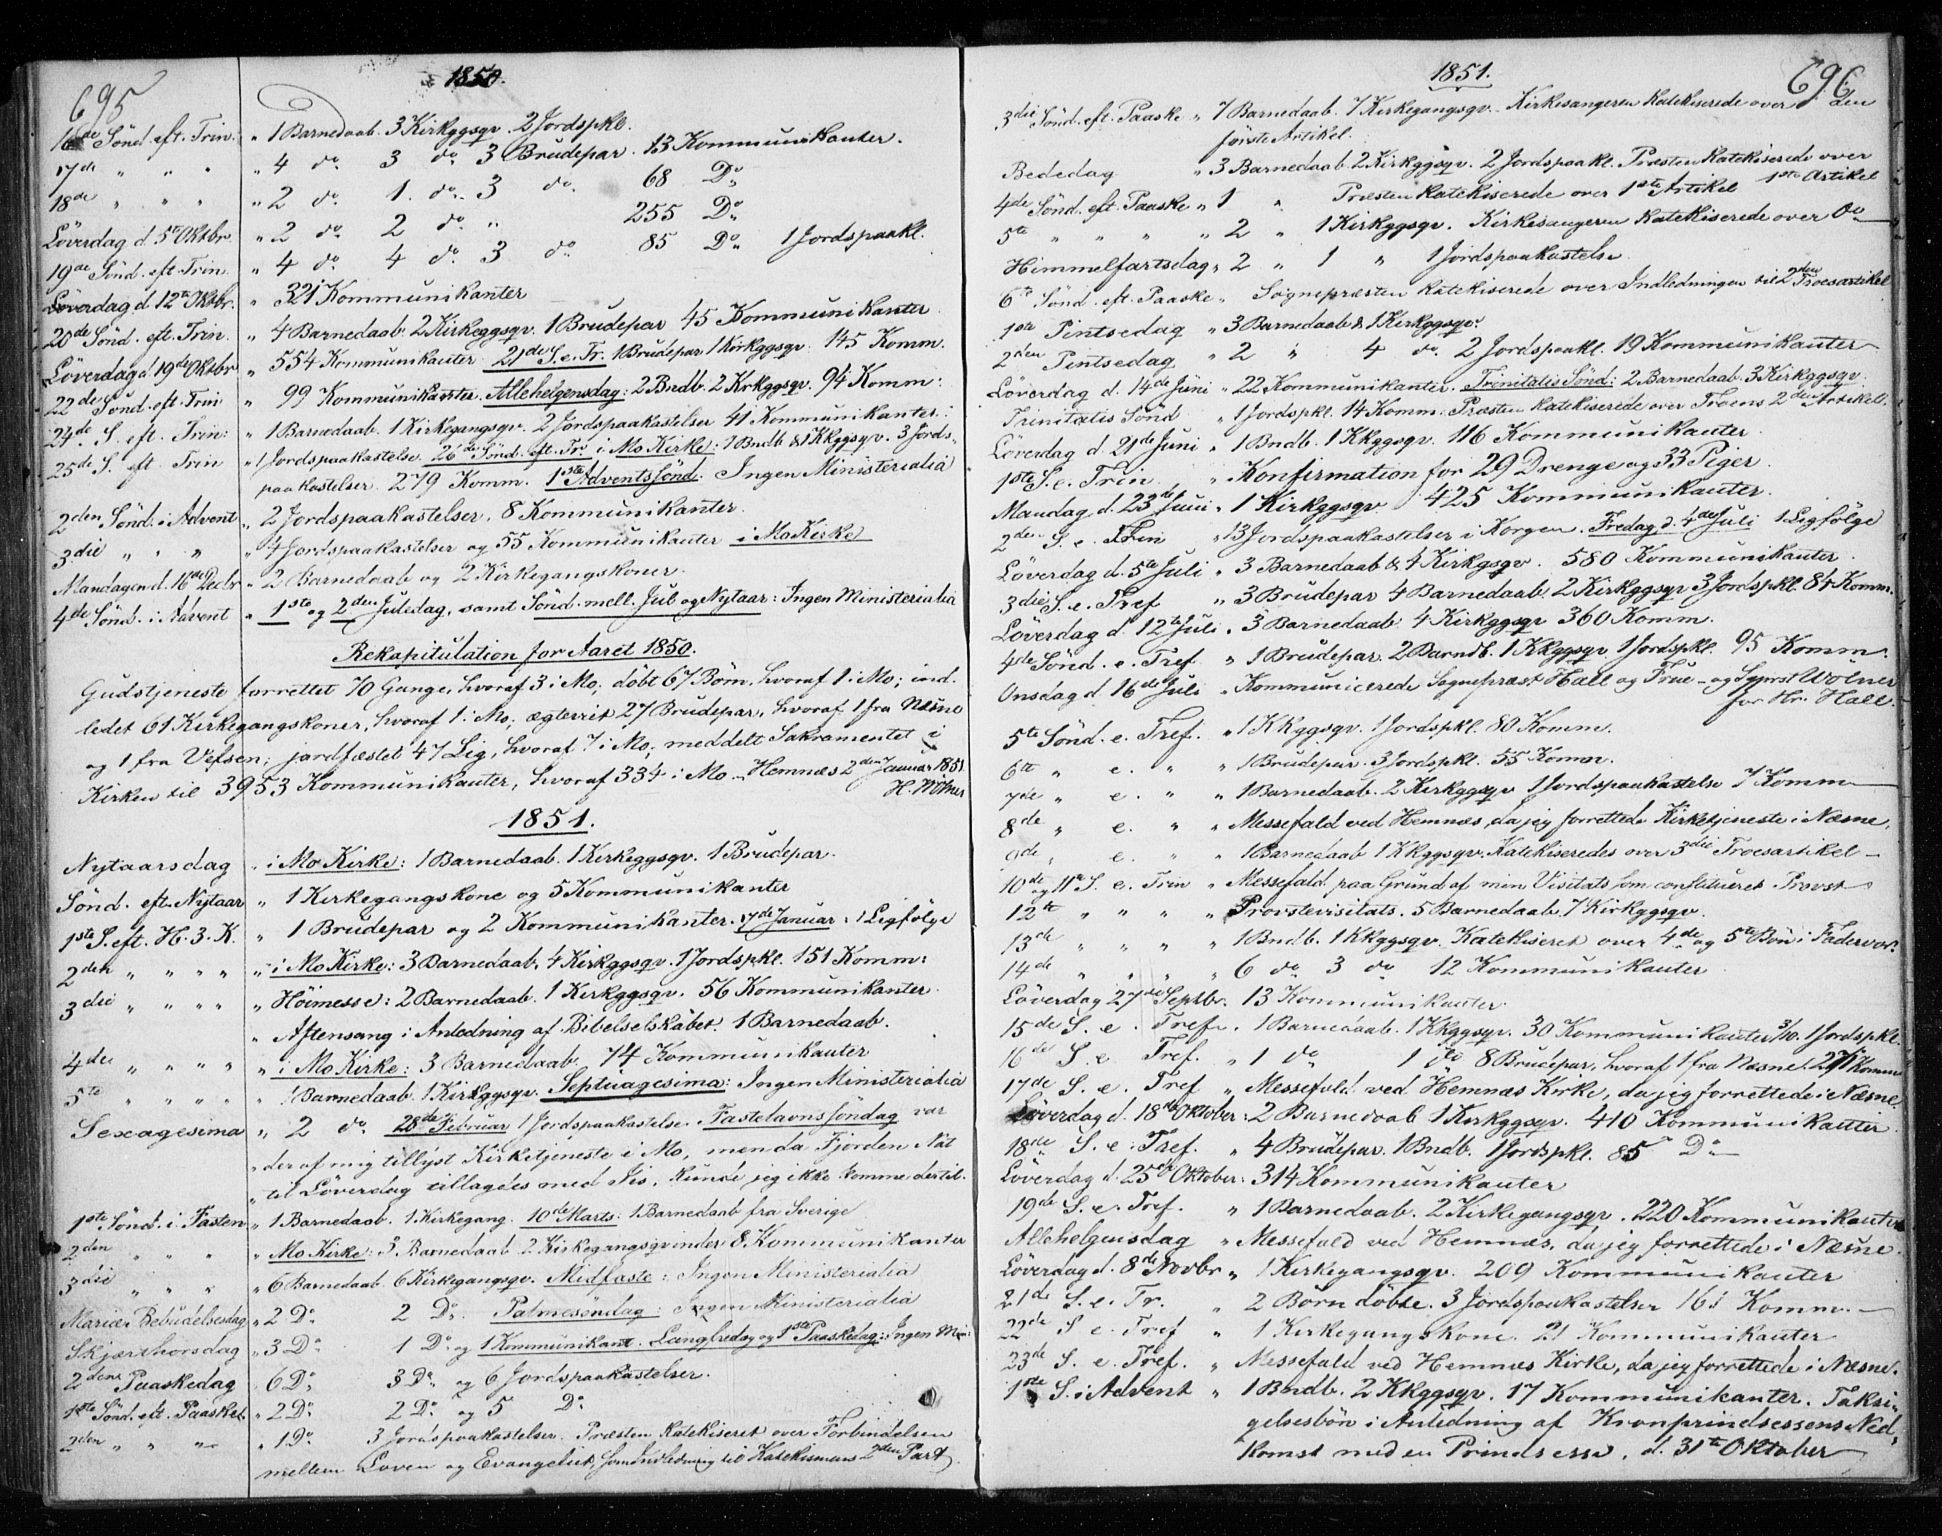 695
1850.
16de Sönd. eft. Trin. „ 1 Barnedaab. 3 Kirkggsqv. 2 Jordspkl.
17de „ „ „ „ 4 do 3 do 3 Brudepar. 13 Kommunikanter.
18de „ „ „ „ 2 do 1. do 3 do. 68 Do
Löverdag d. 5te Oktbr. „ 2 do 2 do „ 255 Do
19de Sönd. eft. Trin. „ 4 do 4 do 3 do 85 Do 1 Jordspaakl.
Löverdag d. 12te Oktbr. „ 321 Kommunikanter
20de Sönd. eft. Trin. „ 4 Barnedaab. 2 Kirkeggsqv. 1 Brudepar 45 Kommunikanter.
Löverdag d. 19de Oktbr „ 554 Kommunikanter. 21de S. e. Tr. 1 Brudepar 1 Kirkggsqv. 145 Komm.
22de Sönd. eft. Trin „ 99 Kommunikanter. Allehelgensdag: 2 Bndb. 2 Krkggsqv. 94 Komm:
24de S. eft. Trin: „ 1 Barnedaab. 1 Kirkegangsqv. 2 Jordspaakastelser 41 Kommunikanter.
25de S. eft. Trin „ 1 Jordspaakastelse. 26de Sönd. eft. Tr. i Mo Kirke: 1 Bndb & 1 Kkggsqv. 3 Jords-
paakastelser. 279 Komm. 1ste Adventssönd: Ingen Ministerialia
2den Sönd. i Advent „ 2 Jordspaakastelser, 8 Kommunikanter.
3die „ „ „ „ 4 Jordspaakastelser og 55 Kommunikanter i Mo Kirke
Mandagen d. 16de Decbr „ 2 Barnedaab og 2 Kirkegangskoner.
4de Sönd. i Advent „ 1ste og 2den Juledag, samt Sönd. mell. Jul og Nytaar: Ingen Ministerialia
Rekapitulation for Aaret 1850.
Gudstjeneste forrettet 70 Gange, hvoraf 3 i Mo; döbt 67 Börn, hvoraf 1 i Mo; ind-
ledet 61 Kirkegangskoner, hvoraf 1 i Mo; ægteviet 27 Brudepar, hvoraf 1 fra Næsne
og 1 fra Vefsen; jordfæstet 47 Lig, hvoraf 7 i Mo; meddelt Sakramentet i
Kirken til 3953 Kommunikanter, hvoraf 334 i Mo. Hemnæs 2den Januar 1851.
H. Wölner
1851.
Nytaarsdag „ i Mo Kirke: 1 Barnedaab. 1 Kirkeggsqv. 1 Brudepar.
Sönd. eft. Nytaar „ 1 Kirkegangskone og 5 Kommunikanter
1ste S. eft. H. 3. K. „ 1 Brudepar og 2 Kommunikanter. 17de Januar: 1 Ligfölge
2den „ „ „ „ „ i Mo Kirke: 3 Barnedaab. 4 Kirkggsqv. 1 Jordspkl. 151 Komm:
3die „ „ „ „ „ Höimesse: 2 Barnedaab. 1 Kirkggsqv. 56 Kommunikanter.
„ Aftensang i Anledning af Bibelselskabet. 1 Barnedaab.
4de „ „ „ „ „ i Mo Kirke: 3 Barnedaab. 74 Kommunikanter
5te „ „ „ „ „ 1 Barnedaab. 1 Kirkggsqv. Septuagesima: Ingen Ministerialia
Sexagesima „ 2 do. 28de Februar 1 Jordspaakastelse. Fastelavnssöndag var
„ der af mig tillyst Kirketjeneste i Mo, men da Fjorden Nat
„ til Löverdag tillagdes med Iis, kunde jeg ikke komme dertil.
1ste Sönd. i Fasten „ 1 Barnedaab. 1 Kirkegang. 10de Marts: 1 Barnedaab fra Sverige
2den „ „ „ „ Mo Kirke: 3 Barnedaab 2 Kirkegangsqvinder 8 Kommunikanter
3die „ „ „ 6 Barnedaab. 6 Kirkegangsqv. Midfaste: Ingen Ministerialia
Mariæ Bebudelsesdag „ 2 Do 2 Do. Palmesöndag: Ingen Ministerialia
Skjærthorsdag „ 3 Do 1 Do og 1 Kommunikant. Langfredag og 1ste Paaskedag: Ingen Min:
2den Paaskedag „ 6 Do 3 Do og 6 Jordspaakastelser.
1ste Sönd. eft. Paaske „ 2 Do 2 Do og 5 Do
2den „ „ „ „ 1 Do 3 Jordspaakastelser. Præsten katekiseret over Forbindelsen
mellem Loven og Evangeliet, som Indledning til Katekismens 2den Part.
696
1851.
3die Sönd. eft. Paaske „ 7 Barnedaab. 7 Kirkegangsqv. Kirkesangeren katekiserede over den
förste Artikel.
Bededag „ 3 Barnedaab. 2 Kirkggsqv. 2 Jordspaakl. Præsten katekiserede over
1ste Artikel
4de Sönd. eft. Paaske „ 1 „ Præsten katekiserede over 1ste Artikel
5te „ „ „ „ 2 „ 1 Kirkggsqv. Kirkesangeren katekiserede over Do
Himmelfartsdag „ 2 „ 1 „ 1 Jordspaakastelse
6te Sönd. eft. Paaske „ Sognepræsten katekiserede over Indledningen til 2den Troesartikel
1ste Pintsedag „ 3 Barnedaab & 1 Kirkggsqv.
2den Pintsedag „ 2 „ 4 do. 2 Jordspaakl. 19 Kommunikanter
Löverdag d. 14de Juni „ 22 Kommunikanter. Trinitatis Sönd: 2 Barnedaab. 3 Kirkggsqv.
Trinitatis Sönd „ 1 Jordspkl. 14 Komm. Præsten katekiserede over Troens 2den Artikel.
Löverdag d. 21de Juni „ 1 Bndb. 1 Kkggsqv. 116 Kommunikanter.
1ste S. e. Trin „ Konfirmation for 29 Drenge og 33 Piger.
Mandag d. 23de Juni „ 1 Kirkggsqv 425 Kommunikanter.
2den S. e. Trin „ 13 Jordspaakastelser i Korgen. Fredag d. 4de Juli 1 Ligfölge
Löverdag d. 5te Juli „ 3 Barnedaab & 4 Kirkggsqv. 580 Kommunikanter.
3die S. e. Tref „ 3 Brudepar 4 Barnedaab. 2 Kirkggsqv 3 Jordspkl. 84 Komm.
Löverdag d. 12te Juli. 3 Barnedaab. 4 Kirkggsqv 360 Komm.
4de Sönd. e. Tref. „ 1 Brudepar. 2 Barndb. 1 Kkggsqv 1 Jordspkl. 95 Komm.
Onsdag d. 16de Juli „ Kommunicerede Sognepræst Hall og Frue – og Wölner
for Hr. Hall.
5te Sönd. e. Tref. „ 1 Kkggsqv. 1 Jordspkl. 80 Komm.
6te „ e. „ „ 1 Brudepar. 3 Jordspkl. 55 Komm.
7de „ e. „ „ 1 Barnedaab. 2 Kirkggsqv 1 Jordspaakastelse 7 Komm
8de „ e. „ „ Messefald ved Hemnæs, da jeg forrettede Kirketjeneste i Næsne.
9de „ e. „ „ 1 Barnedaab 1 Kkggsqv. Katekiseredes over 3die Troesartikel –
10de og 11te S. e. Trin „ Messefald paa Grund af min Visitats som constitueret Provst
12te „ „ „ „ Provstevisitats. 5 Barnedaab. 7 Kirkggsqv.
13de „ „ „ „ 1 Bndb. 1 Kkggsqv. Katekiseret over 4de og 5te Bön i Fadervor.
14de „ „ „ „ 6 do 3 do 12 Kommunikanter
Löverdag 27de Septbr. 13 Kommunikanter.
15de S. e. Tref. „ 1 Barnedaab. 1 Kkggsqv. 30 Kommunikanter 3/10. 1 Jordspkl.
16de S. e. Tref. „ 1 do 1 do 8 Brudepar, hvoraf 1 fra Næsne. 271 Komm
17de S. e. Tref „ Messefald ved Hemnæs Kirke, da jeg forrettede i Næsne.
Löverdag d. 18de Oktober: 2 Barnedaab 1 Kirkggsqv. 410 Kommunikanter
18de S. e. Tref. „ 4 Brudepar. 1 Bndb. 1 Jordspkl. 85 Do
Löverdag d. 25de Oktober: 314 Kommunikanter
19de S. e. Tref. „ 1 Barnedaab. 2 Kirkegangsqv. 220 Kommunikanter
Allehelgensdag „ Messefald ved Hemnæs, da jeg forrettede i Næsne.
Löverdag d. 8de Novbr „ 1 Kirkegangsqv. 209 Kommunikanter
21de S. e. Tr. „ 2 Börn döbte. 3 Jordspaakastelser 161 Komm. –
22de S e. Tref „ 1 Kirkegangskone 21 Kommunikanter
23de S. e. Tref. „ Messefald ved Hemnæs Kirke, da jeg forrettede i Næsne.
1ste S. i Advent „ 1 Bndb. 2 Kkggsqv. 17 Kommunikanter. Taksi-
gelsesbön i Anledning af Kronprindsessens Ned-
komst med en Prindsesse, d. 31te Oktober